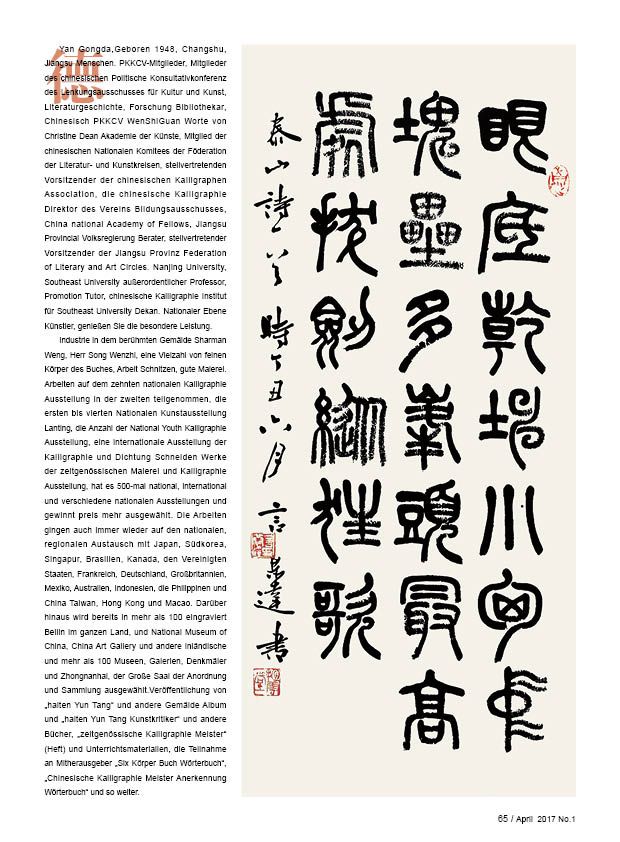 德
Yan Gongda,Geboren 1948, Changshu,
Jiangsu Menschen. PKKCV-Mitglieder, Mitglieder
des chinesischen Politische Konsultativkonferenz
des Lenkungsausschusses für Kultur und Kunst,
Literaturgeschichte, Forschung Bibliothekar,
Chinesisch PKKCV WenShiGuan Worte von
Christine Dean Akademie der Künste, Mitglied der
chinesischen Nationalen Komitees der Föderation
der Literatur- und Kunstkreisen, stellvertretenden
Vorsitzender der chinesischen Kalligraphen
Association, die chinesische Kalligraphie
Direktor des Vereins Bildungsausschusses,
China national Academy of Fellows, Jiangsu
Provincial Volksregierung Berater, stellvertretender
Vorsitzender der Jiangsu Provinz Federation
of Literary and Art Circles. Nanjing University,
Southeast University außerordentlicher Professor,
Promotion Tutor, chinesische Kalligraphie Institut
für Southeast University Dekan. Nationaler Ebene
Künstler, genießen Sie die besondere Leistung.
Industrie in dem berühmten Gemälde Sharman
Weng, Herr Song Wenzhi, eine Vielzahl von feinen
Körper des Buches, Arbeit Schnitzen, gute Malerei.
Arbeiten auf dem zehnten nationalen Kalligraphie
Ausstellung in der zweiten teilgenommen, die
ersten bis vierten Nationalen Kunstausstellung
Lanting, die Anzahl der National Youth Kalligraphie
Ausstellung, eine internationale Ausstellung der
Kalligraphie und Dichtung Schneiden Werke
der zeitgenössischen Malerei und Kalligraphie
Ausstellung, hat es 500-mal national, international
und verschiedene nationalen Ausstellungen und
gewinnt preis mehr ausgewählt. Die Arbeiten
gingen auch immer wieder auf den nationalen,
regionalen Austausch mit Japan, Südkorea,
Singapur, Brasilien, Kanada, den Vereinigten
Staaten, Frankreich, Deutschland, Großbritannien,
Mexiko, Australien, Indonesien, die Philippinen und
China Taiwan, Hong Kong und Macao. Darüber
hinaus wird bereits in mehr als 100 eingraviert
Beilin im ganzen Land, und National Museum of
China, China Art Gallery und andere inländische
und mehr als 100 Museen, Galerien, Denkmäler
und Zhongnanhai, der Große Saal der Anordnung
und Sammlung ausgewählt.Veröffentlichung von
„halten Yun Tang“ und andere Gemälde Album
und „halten Yun Tang Kunstkritiker“ und andere
Bücher, „zeitgenössische Kalligraphie Meister“
(Heft) und Unterrichtsmaterialien, die Teilnahme
an Mitherausgeber „Six Körper Buch Wörterbuch“,
„Chinesische Kalligraphie Meister Anerkennung
Wörterbuch“ und so weiter.
眼底乾坤小匈中
塊壘多峯頭最高
處拔劍縱狂歌
泰山詩一首 時丁丑六月 言恭達書
65 / April 2017 No.1